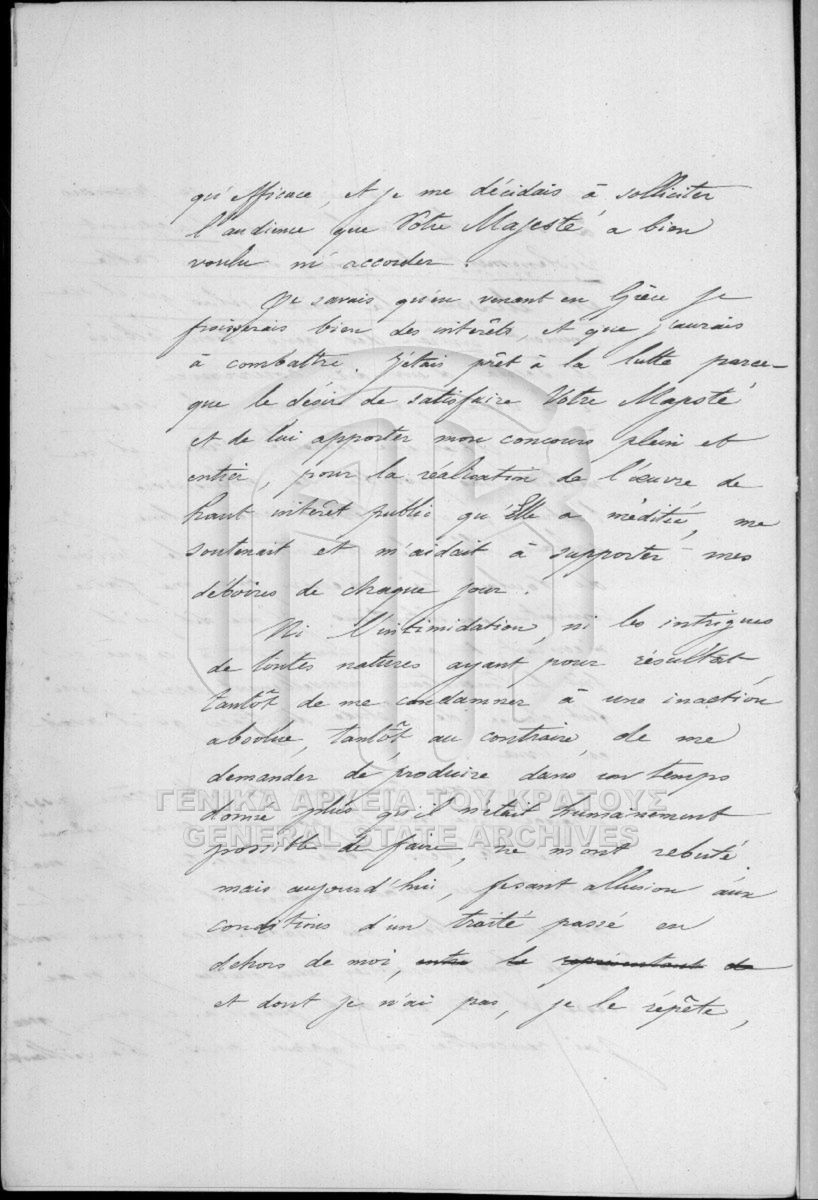 qu'efficace, et je me décidais à solliciter
l'audience que Votre Majesté a bien
voulu m'accorder.
Je savais qu'en venant en Grèce je
froisserais bien des intérêts, et que j'aurais
à combattre. J'étais prêt à la lutte parce-
que le désir de satisfaire Votre Majesté
et de lui apporter mon concours plein et
entier, pour la réalisation de l'œuvre de
haut intérêt public qu'Elle a méditée, me
soutenait et m'aidait à supporter mes
déboires de chaque jour.
Ni l'intimidation, ni les intrigues
de toutes natures ayant pour résultat,
tantôt de me condamner à une inaction
absolue, tantôt au contraire, de me
demander de produire dans un temps
donné plus qu'il n'était humainement
ΓΕΝΙΚΑ ΑΡΧΕΙΑ ΤΟΥ ΚΡΑΤΟΥΣ
GENERAL STATE ARCHIVES
possible de faire, ne m'ont rebuté
mais aujourd'hui, fesant allusion aux
conditions d'un traité passé en
dehors de moi, entre le représentant de
et dont je n'ai pas, je le répète,